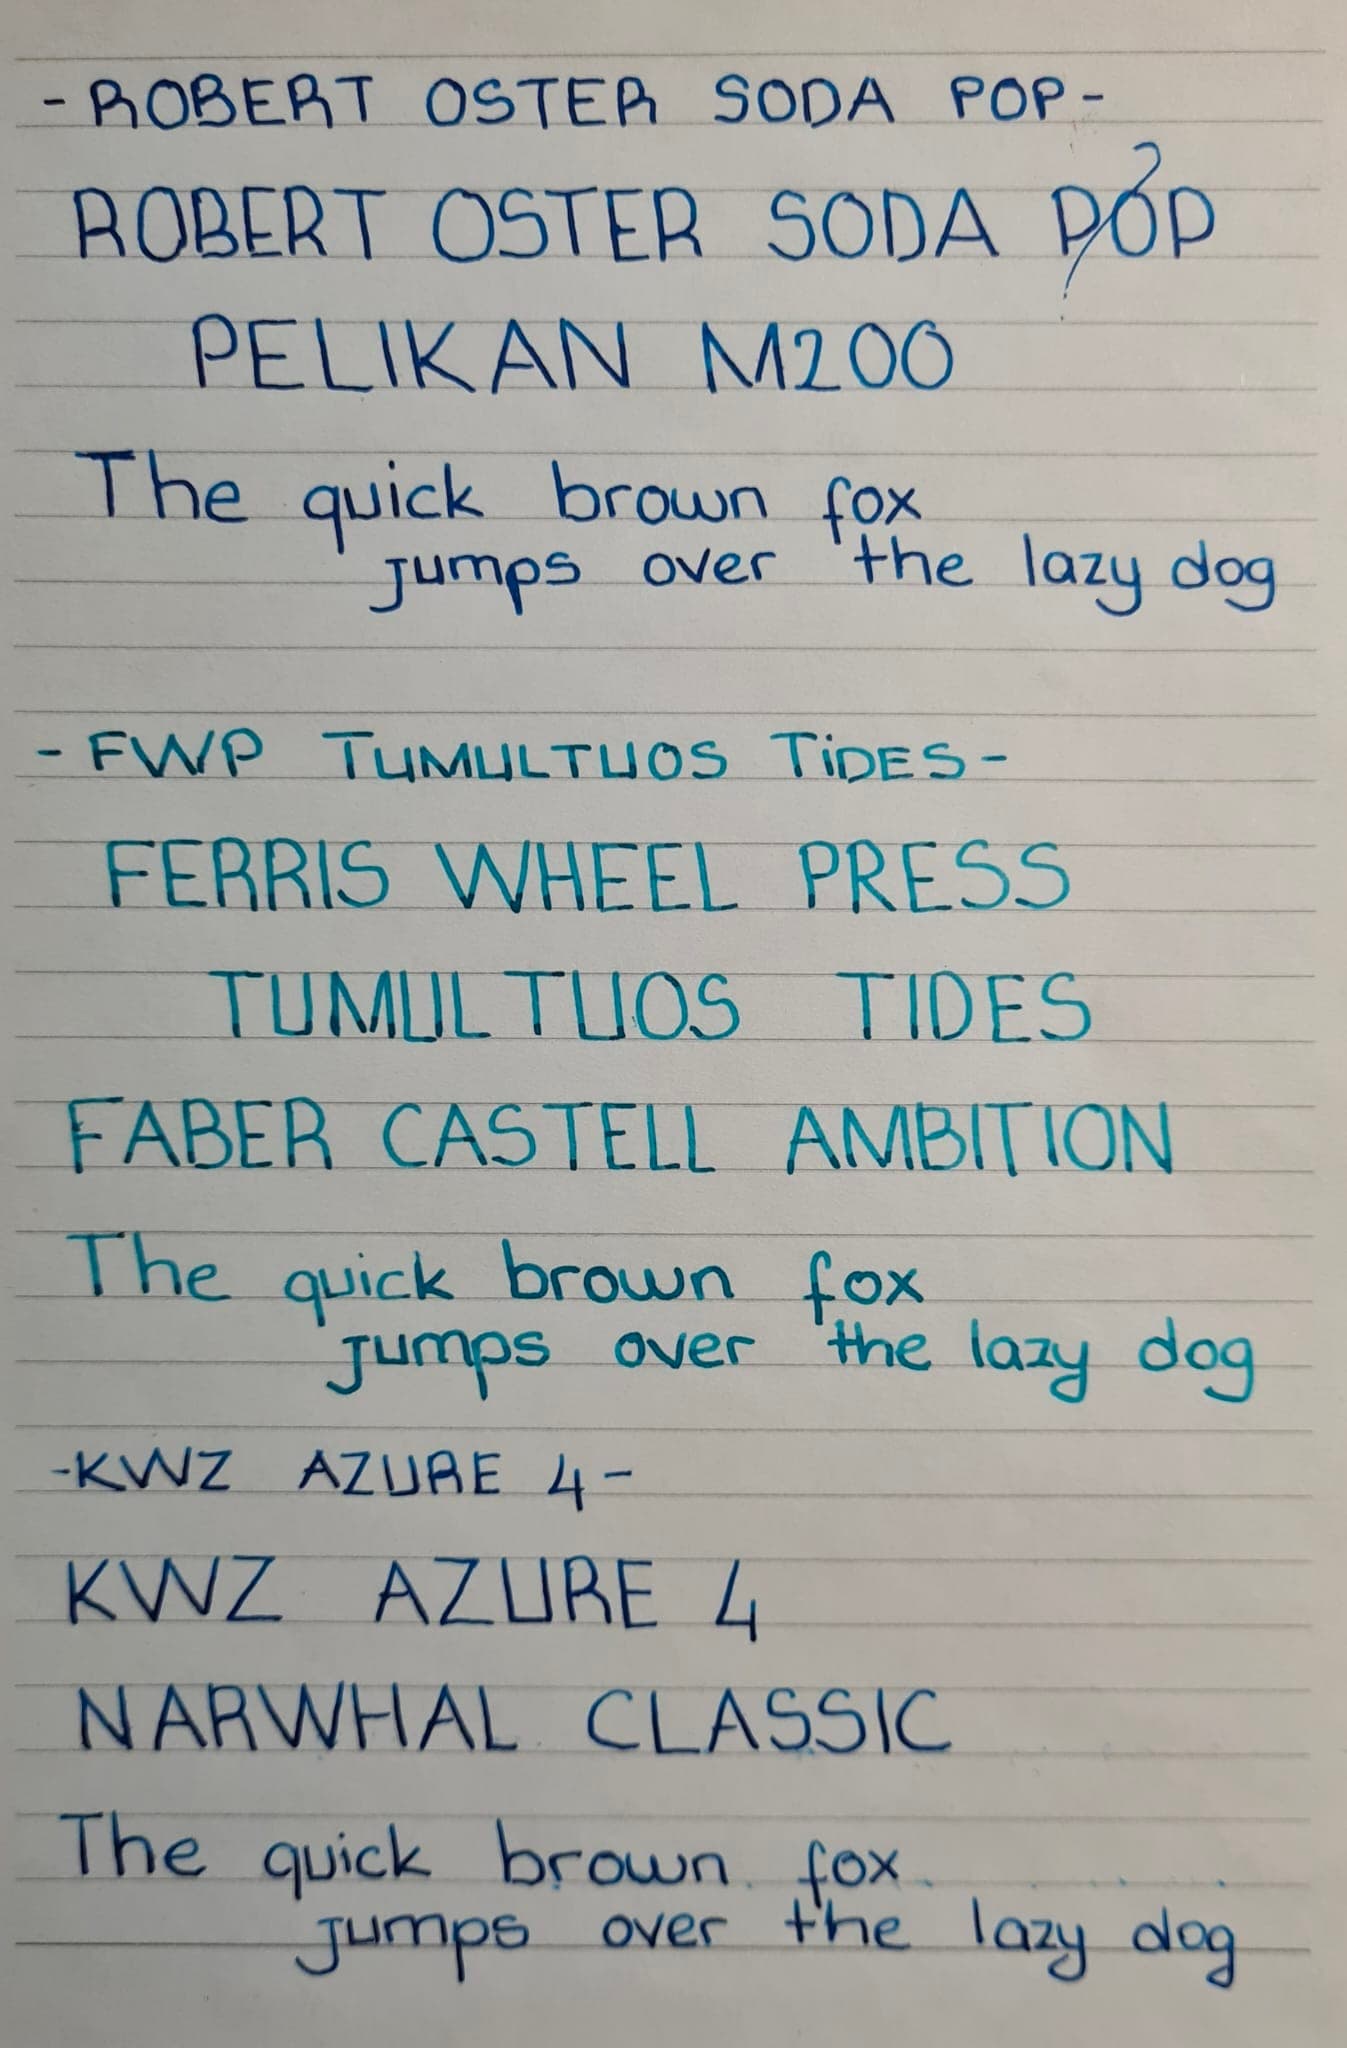 - ROBERT OSTER SODA POP -
ROBERT OSTER SODA POP
PELIKAN M200
The quick brown fox
jumps over the lazy dog
- FWP TUMULTUOS TiDES -
FERRIS WHEEL PRESS
TUMULTUOS TIDES
FABER CASTELL AMBITION
The quick brown fox
jumps over the lazy dog
- KWZ AZURE 4 -
KWZ AZURE 4
NARWHAL CLASSIC
The quick brown fox
jumps over the lazy dog